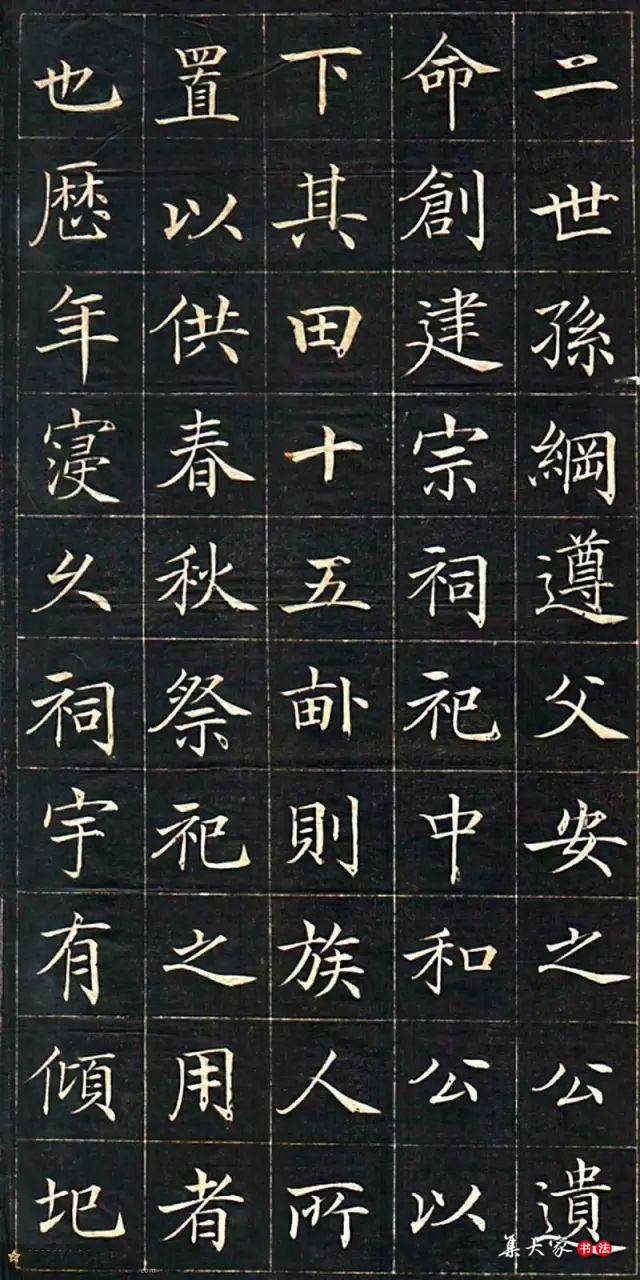 二世孫綱遵父安之公遺
命創建宗祠祀中和公以
下其田十五畝則族人所
置以供春秋祭祀之用者
也歷年寖久祠宇有傾圮
集大家书法